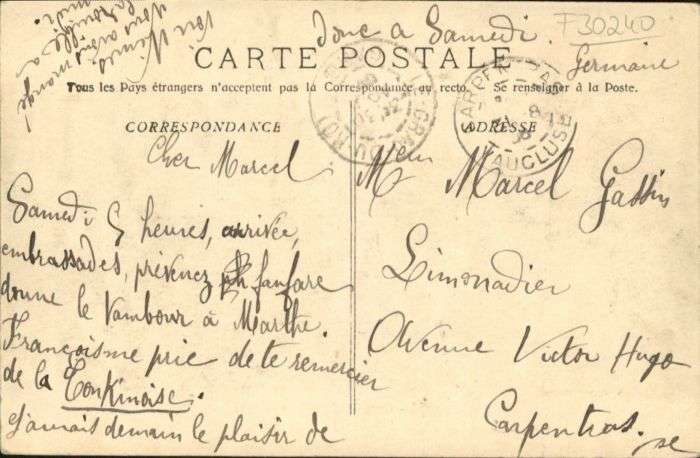 donc a Samedi.
Germaine
F30240
CARTE POSTALE
Tous les Pays étrangers n'acceptent pas la Correspondance au recto. — Se renseigner à la Poste.
CORRESPONDANCE
Cher Marcel
Samedi 5 heures, arrivée,
embrassades, prévenez fanfare
donne le tambour à Marthe.
François me prie de te remercier
de la Tonkinoise.
jamais demain le plaisir de
voir Nîmes
nous avons mangé
ADRESSE
Marcel Gassin
Limonadier
Avenue Victor Hugo
Carpentras.
CARPENTRAS
VAUCLUSE
GRAU DU ROI